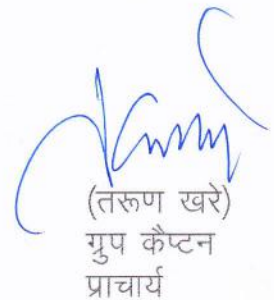 (तरूण खरे)
ग्रुप कैप्टन
प्राचार्य